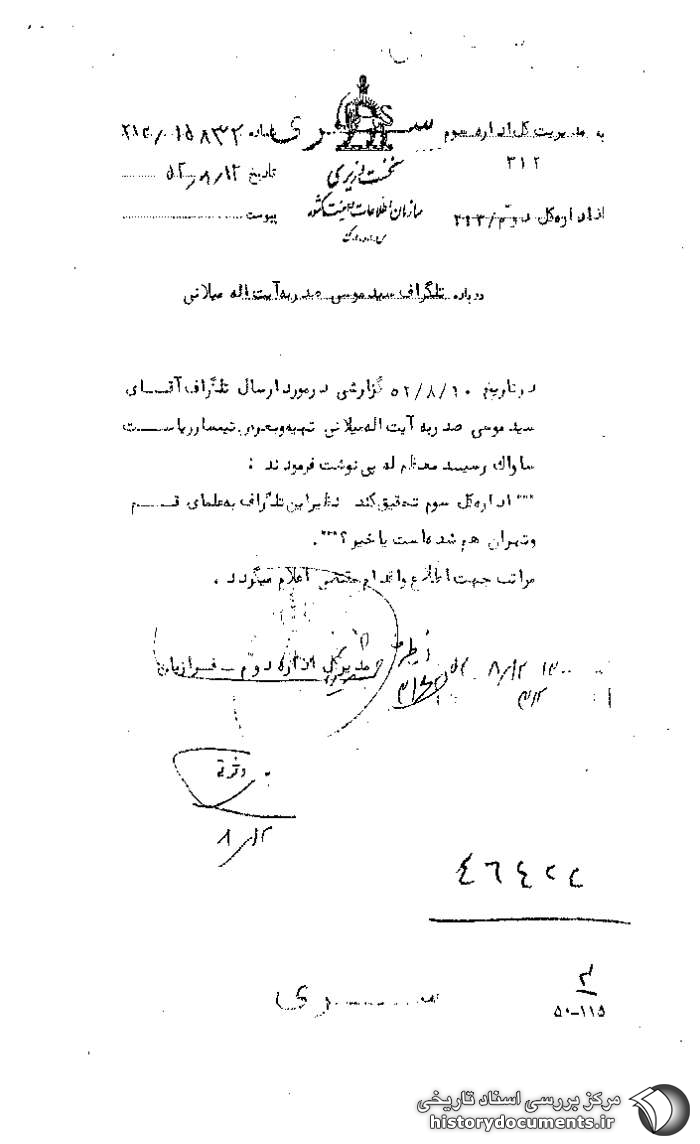 سری
به مدیریت کل اداره سوم
۳۱۲
از اداره کل دوم/۲۲۳
نخست وزیری
سازمان اطلاعات و امنیت کشور
س.ا.و.ا.ک
شماره ۲۱۲/۰۱۵۸۳۲
تاریخ ۵۲/۸/۱۲
پیوست
درباره تلگراف سید موسی صدر به آیت اله میلانی
در تاریخ ۵۲/۸/۱۰ گزارشی در مورد ارسال تلگراف آقای
سید موسی صدر به آیت اله میلانی تهیه و بعرض تیمسار ریاست
ساواک رسید معظم له پی نوشت فرمودند :
""" اداره کل سوم تحقیق کند نظیر این تلگراف به علمای قم
و تهران هم شده است یا خیر ؟""" .
مراتب جهت اطلاع و اقدام مقتضی اعلام میگردد .
مدیر کل اداره دوم - فرازیان
۸/۱۲
۸/۱۲
۳
۵۰-۱۱۵
سری
مرکز بررسی اسناد تاریخی
historydocuments.ir